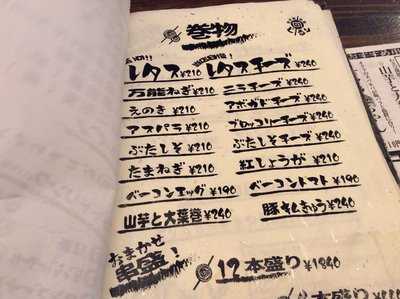 巻物
レタス ¥210 レタスチーズ ¥240
万能ねぎ ¥210 ニラチーズ ¥240
えのき ¥210 アボガドチーズ ¥240
アスパラ ¥210 ブロッコリーチーズ ¥240
ぶたしそ ¥210 ぶたしそチーズ ¥240
たまねぎ ¥210 紅しょうが ¥210
ベーコンエッグ ¥190 ベーコントマト ¥190
山芋と大葉巻 ¥240 豚キムきゅう ¥240
おまかせ
串盛!
12本盛り ¥1840